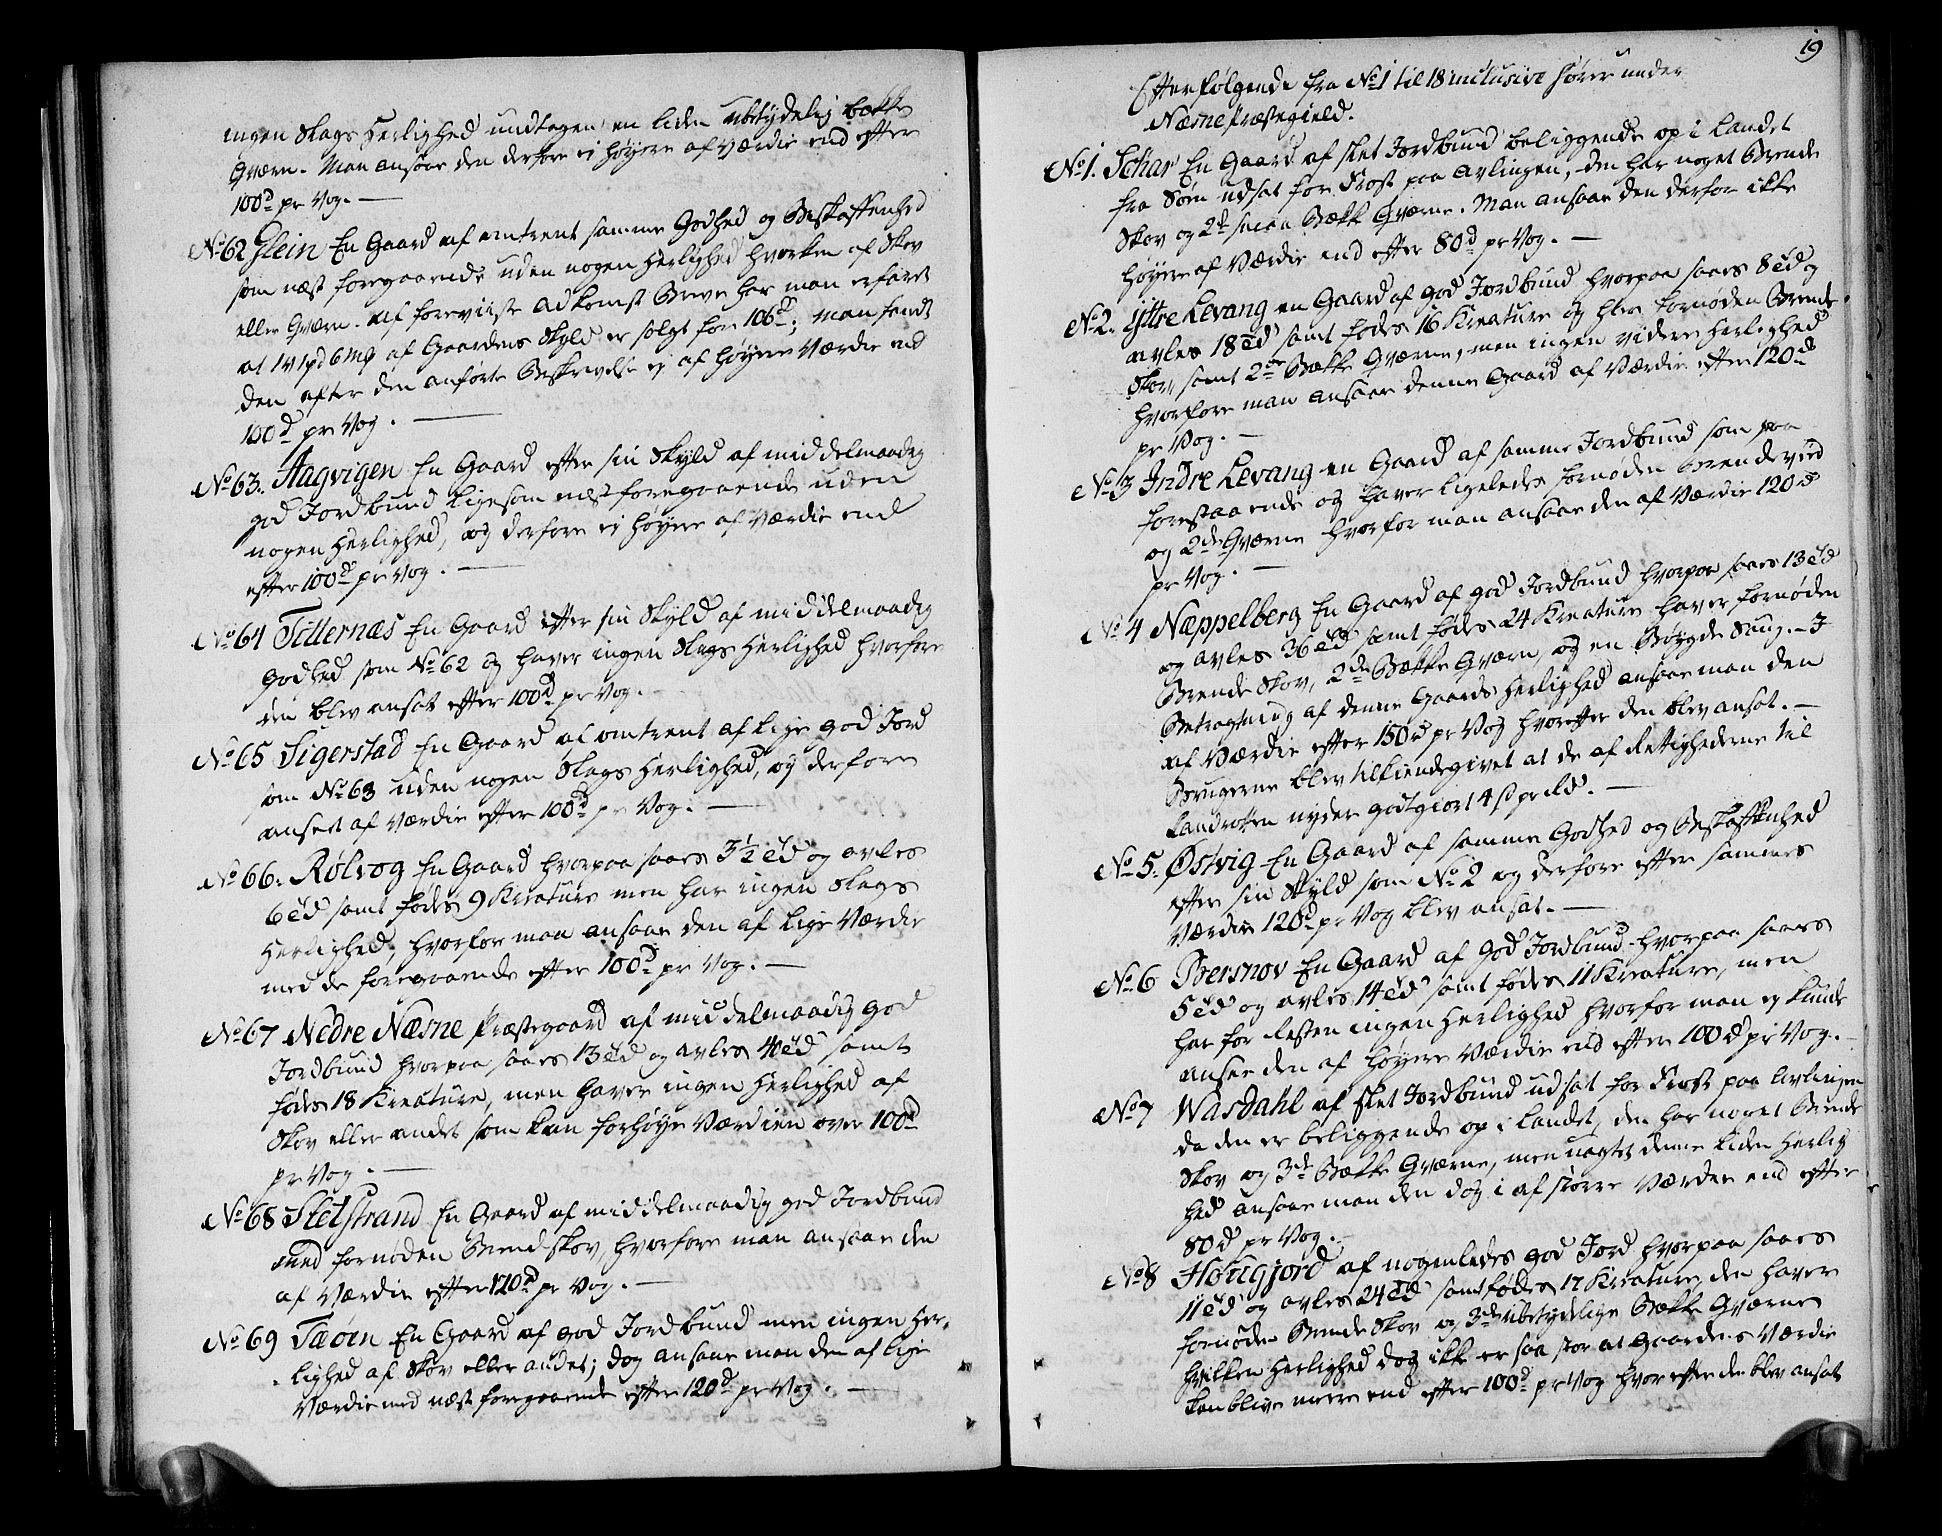 ingen Slags Herlighed undtagen en liden ubetydelig bække
Qværn. Man ansaae den derfore ei høyere af Værdie end efter
100d pr Vog. —
No 62 Glein En Gaard af omtrent samme Godhed og Beskaffenhed
som næst foregaaende uden nogen Herlighed hverken af Skov
eller Qværn. Af foreviiste Adkomst Breve har man erfaret
at 1V 1pd 6mp af Gaardens Skyld er solgt for 106d; Man fandt
den efter den anførte Beskrivelse ej af høyere Værdie end
100d pr Vog. —
No 63. Aagvigen En Gaard efter sin Skyld af middelmaadig
god Jordbund ligesom næstforegaaende uden
nogen Herlighed, og derfore ei høyere af Værdie end
efter 100d pr Vog. —
No 64 Titternæs En Gaard efter sin Skyld af middelmaadig
Godhed som No 62 og haver ingen Slags Herlighed hvorfore
den blev ansat efter 100d pr Vog.
No 65 Sigerstad En Gaard af omtrent af lige god Jord
som No 63 uden nogen Slags Herlighed, og derfore
anseet af Værdie efter 100d pr Vog. —
No 66. Rølvog En Gaard hvorpaa saaes 3½ Td og avles
6 Td samt fødes 9 Kreature men har ingen Slags
Herlighed, hvorfor man ansaae den af lige Værdie
med de foregaaende efter 100d pr Vog. —
No 67 Nedre Næsne Præstegaard af middelmaadig god
Jordbund hvorpaa saaes 13 Td og avles 40 Td samt
fødes 18 Kreature, men haver ingen Herlighed af
Skov eller andet som kan forhøye Værdien over 100d
pr Vog. —
No 68 Sletstrand En Gaard af middelmaadig god Jordbund
med fornøden Brendskov, hvorfore man ansaae den
af Værdie efter 120d pr Vog. —
No 69 Taøen En Gaard af god Jordbund men ingen Her-
lighed af Skov eller andet; dog ansaae man den af lige
Værdie med næst foregaaende efter 120d pr Vog. —
19
Efterfølgende fra No 1 til 18 inclusive hører under
Næsne Præstegield.
No 1. Schar En Gaard af slet Jordbund beliggende op i Landet
fra Søen udsat for Frost paa Avlingen, den har noget Brende
Skov og 2de smaa Bække Qværne. Man ansaae den derfor ikke
høyere af Værdie end efter 80d pr Vog. —
No 2. Yttre Levang en Gaard af god Jordbund hvorpaa saaes 8 Td og
avles 18 Td samt fødes 16 Kreature og har fornøden Brende
Skov, samt 2de Bække Qværne, men ingen videre Herlighed
hvorfore man ansaae denne Gaard af Værdie efter 120d
pr Vog. —
No 3 Indre Levang en Gaard af samme Jordbund som paa
forestaaende og haver ligeledes fornøden Brendeved
og 2de Qværne hvorfor man ansaae den af Værdie 120d
pr Vog. —
No 4 Næppelberg En Gaard af god Jordbund hvorpaa saaes 13 Td
og avles 36 Td samt fødes 24 Kreature haver fornøden
Brende Skov, 2de Bække Qværn, og en Bøygde Saug. — I
Betragtning af denne Gaards Herlighed ansaae man den
af Værdie efter 150d pr Vog hvorefter den blev ansat. —
Brugerne blev tilkiendegivet at de af Rettighederne til
Landroten nyder godtgiort 4 ß pr Rd. —
No 5. Østvig En Gaard af samme Godhed og Beskaffenhed
efter sin Skyld som No 2 og derfore efter sammes
Værdie 120d pr Vog blev ansat. —
No 6 Bersnov En Gaard af god Jordbund hvorpaa saaes
5 Td og avles 14 Td samt fødes 11 Kreature, men
har for Resten ingen Herlighed hvorfor man ej kunde
ansee den af høyere Værdie end efter 100d pr Vog. —
No 7 Wasdahl af slet Jordbund udsat for Frost paa Avlingen
da den er beliggende op i Landet, den har noget Brende
Skov og 3de Bække Qværne, men uagtet denne liden Herlig
hed ansaae man den dog i af større Værdie end efter
80d pr Vog. —
No 8 Hougjord af nogenledes god Jord hvorpaa saaes
11 Td og avles 24 Td samt fødes 17 Kreature, den haver
fornøden Brende Skov og 3de ubetydelige Bække Qværne
hvilken Herlighed dog ikke er saa stor at Gaardens Værdie
kan blive meere end efter 100d pr Vog hvorefter den blev ansat